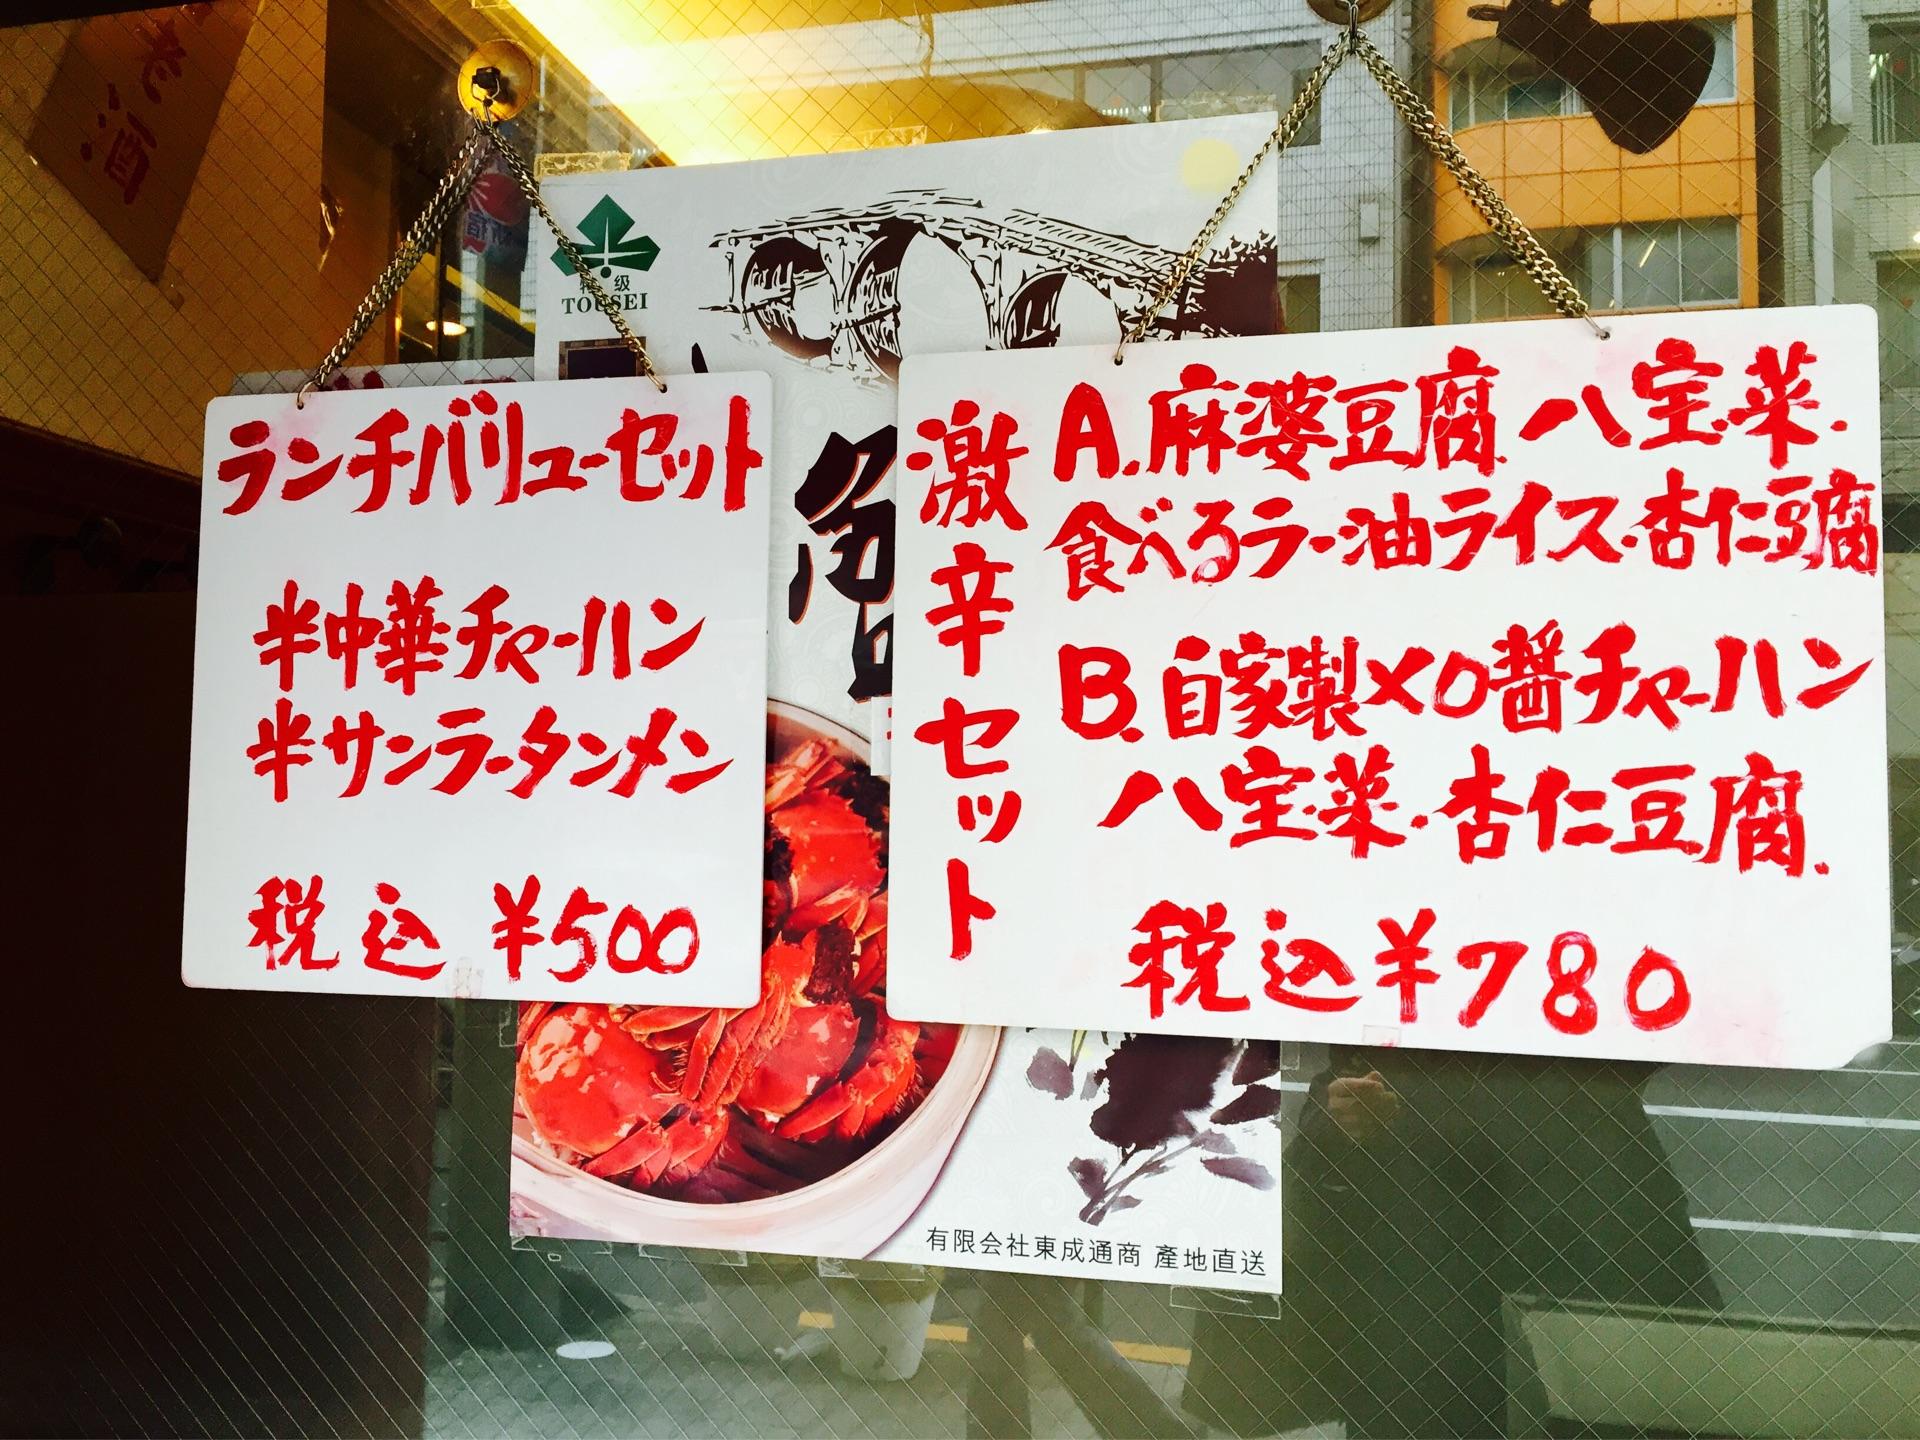 ランチバリューセット
半中華チャーハン
半サンラータンメン
税込 ¥500
激辛セット
A.麻婆豆腐 八宝菜.
食べるラー油ライス.杏仁豆腐
B.自家製XO醤チャーハン
八宝菜.杏仁豆腐.
税込¥780
老酒
特级
TOUSEI
蟹
有限会社東成通商 產地直送